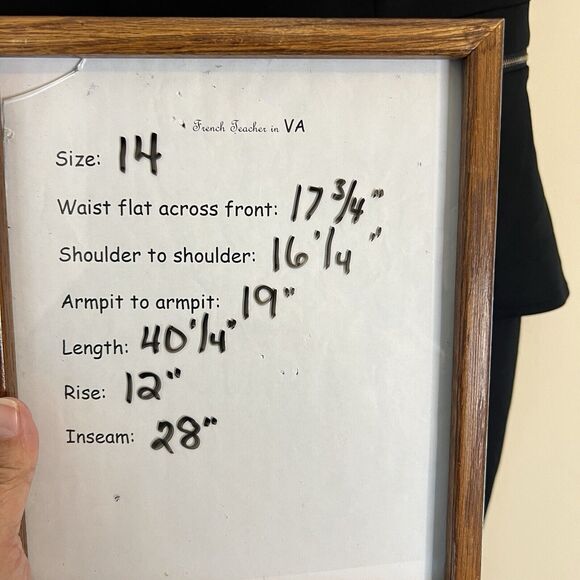 French Teacher in VA
Size: 14
Waist flat across front: 17 3/4"
Shoulder to shoulder: 16 1/4"
Armpit to armpit: 19"
Length: 40 1/4"
Rise: 12"
Inseam: 28"